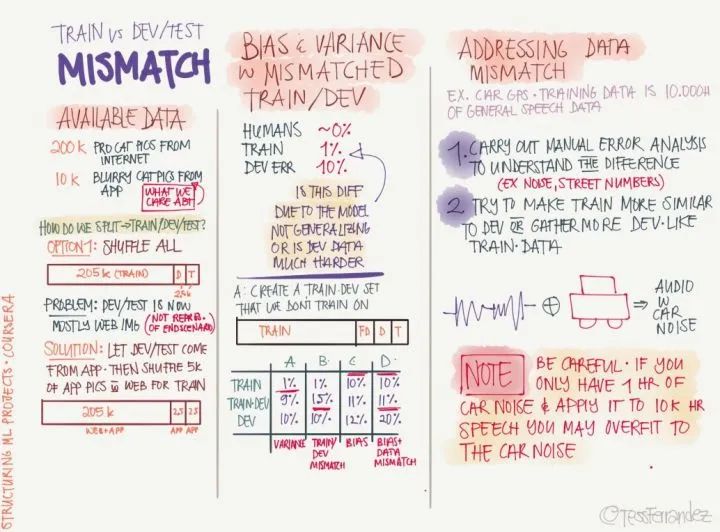 TRAIN vs DEV/TEST
MISMATCH
AVAILABLE DATA
200K PRO CAT PICS FROM
INTERNET
10K BLURRY CAT PICS FROM
APP
WHAT WE
CARE ABT
HOW DO WE SPLIT → TRAIN/DEV/TEST?
OPTION 1: SHUFFLE ALL
205k (TRAIN) D T
2.5k
PROBLEM: DEV/TEST IS NOW
MOSTLY WEB IMG (NOT REPR.
OF END SCENARIO)
SOLUTION: LET DEV/TEST COME
FROM APP. THEN SHUFFLE 5K
OF APP PICS W WEB FOR TRAIN
205k 2.5 2.5
WEB+APP APP APP
STRUCTURING ML PROJECTS · COURSERA
BIAS & VARIANCE
W MISMATCHED
TRAIN/DEV
HUMANS ~0%
TRAIN 1%
DEV ERR 10%
IS THIS DIFF
DUE TO THE MODEL
NOT GENERALIZING
OR IS DEV DATA
MUCH HARDER
A: CREATE A TRAIN-DEV SET
THAT WE DON'T TRAIN ON
TRAIN TD D T
A B C D
TRAIN 1% 1% 10% 10%
TRAIN-DEV 9% 1.5% 11% 11%
DEV 10% 10% 12% 20%
VARIANCE TRAIN/ BIAS BIAS+
DEV DATA
MISMATCH MISMATCH
ADDRESSING DATA
MISMATCH
EX. CAR GPS · TRAINING DATA IS 10.000H
OF GENERAL SPEECH DATA
1. CARRY OUT MANUAL ERROR ANALYSIS
TO UNDERSTAND THE DIFFERENCE
(EX NOISE, STREET NUMBERS)
2. TRY TO MAKE TRAIN MORE SIMILAR
TO DEV OR GATHER MORE DEV-LIKE
TRAIN-DATA
⊕ ⇒ AUDIO
W CAR
NOISE
NOTE BE CAREFUL · IF YOU
ONLY HAVE 1 HR OF
CAR NOISE & APPLY IT TO 10K HR
SPEECH YOU MAY OVERFIT TO
THE CAR NOISE
©TessFerrandez